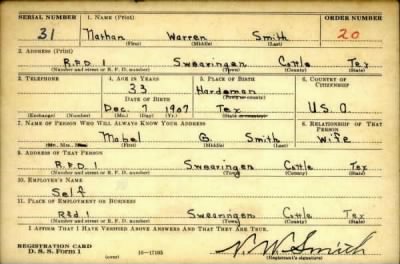 SERIAL NUMBER 1. NAME (Print) ORDER NUMBER
31 Nathan Warren Smith 20
(First) (Middle) (Last)
2. ADDRESS (Print)
R.F.D 1 Swearingen Cottle Tex
(Number and street or R. F. D. number) (Town) (County) (State)
3. TELEPHONE 4. AGE IN YEARS 5. PLACE OF BIRTH 6. COUNTRY OF CITIZENSHIP
33 Hardeman
DATE OF BIRTH (Town or county)
Dec 7 1907 Tex U.S.A.
(Exchange) (Number) (Mo.) (Day) (Yr.) (State or country)
7. NAME OF PERSON WHO WILL ALWAYS KNOW YOUR ADDRESS 8. RELATIONSHIP OF THAT PERSON
Mabel B Smith Wife
(Mr., Mrs., Miss) (First) (Middle) (Last)
9. ADDRESS OF THAT PERSON
R.F.D 1 Swearingen Cottle Tex
(Number and street or R. F. D. number) (Town) (County) (State)
10. EMPLOYER'S NAME
Self
11. PLACE OF EMPLOYMENT OR BUSINESS
Rfd 1 Swearingen Cottle Tex
(Number and street or R. F. D. number) (Town) (County) (State)
I AFFIRM THAT I HAVE VERIFIED ABOVE ANSWERS AND THAT THEY ARE TRUE.
REGISTRATION CARD
D. S. S. Form 1 (over) 16—17105 N.W. Smith
(Registrant's signature)